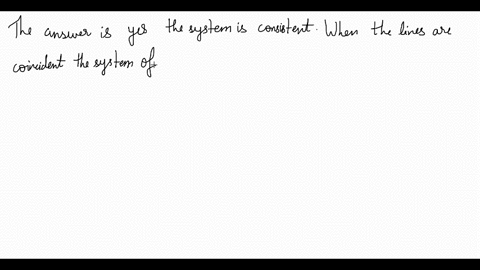 The answer is yes the system is consistent. When the lines are
coincident the system of